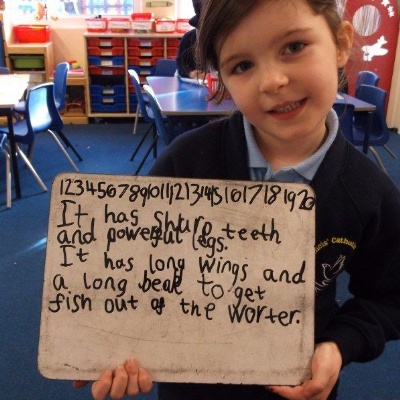 1 2 3 4 5 6 7 8 9 10 11 12 13 14 15 16 17 18 19 20
It has shturp teeth
and powerful legs.
It has long wings and
a long beak to get
fish out of the worter.
Catholic